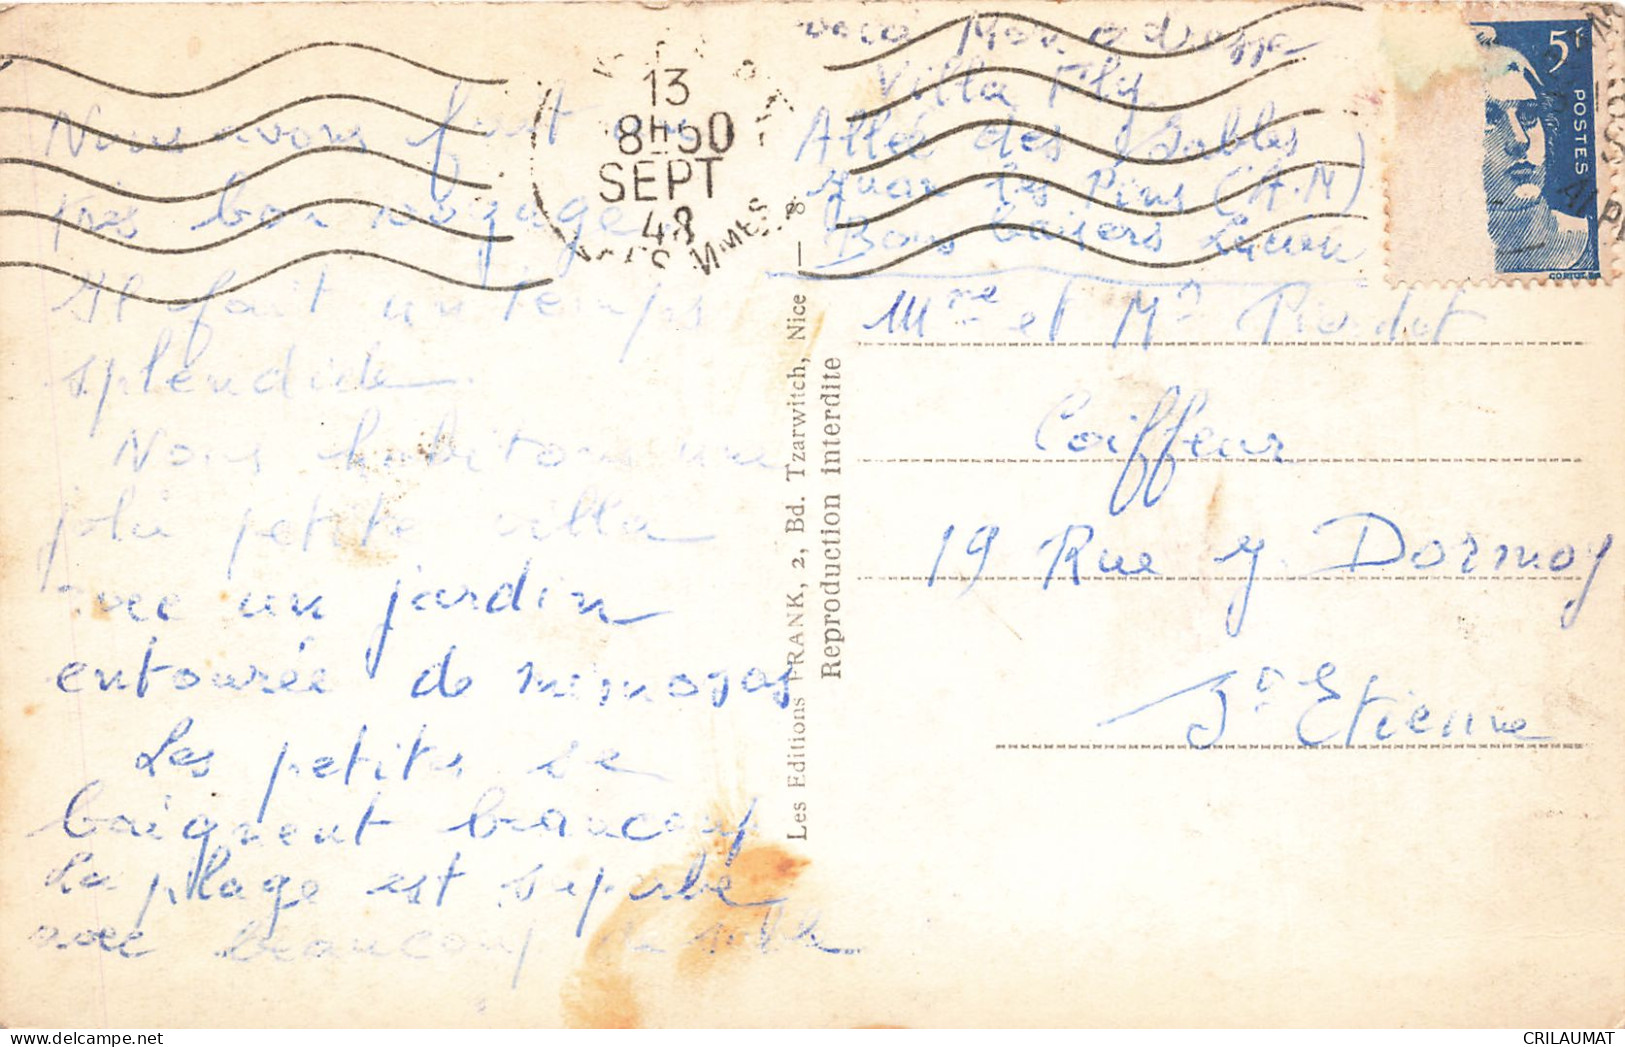 Nous avons fait un
très bon voyage
Il fait un temps
splendide.
Nous habitons une
jolie petite villa
avec un jardin
entourée de mimosas
Les petites se
baignent beaucoup
La plage est superbe
avec beaucoup de sable
voici Mon adresse
Villa Fly
Allée des Sables
Juan les Pins (A.M)
Bons baisers Lucien
13
8H50
SEPT
48
5F
POSTES
Mme et Mr
Coiffeur
19 Rue y. Dormoy
St Etienne
Les Editions FRANK, 2, Bd. Tzarwitch, Nice — 8
Reproduction interdite
CRILAUMAT